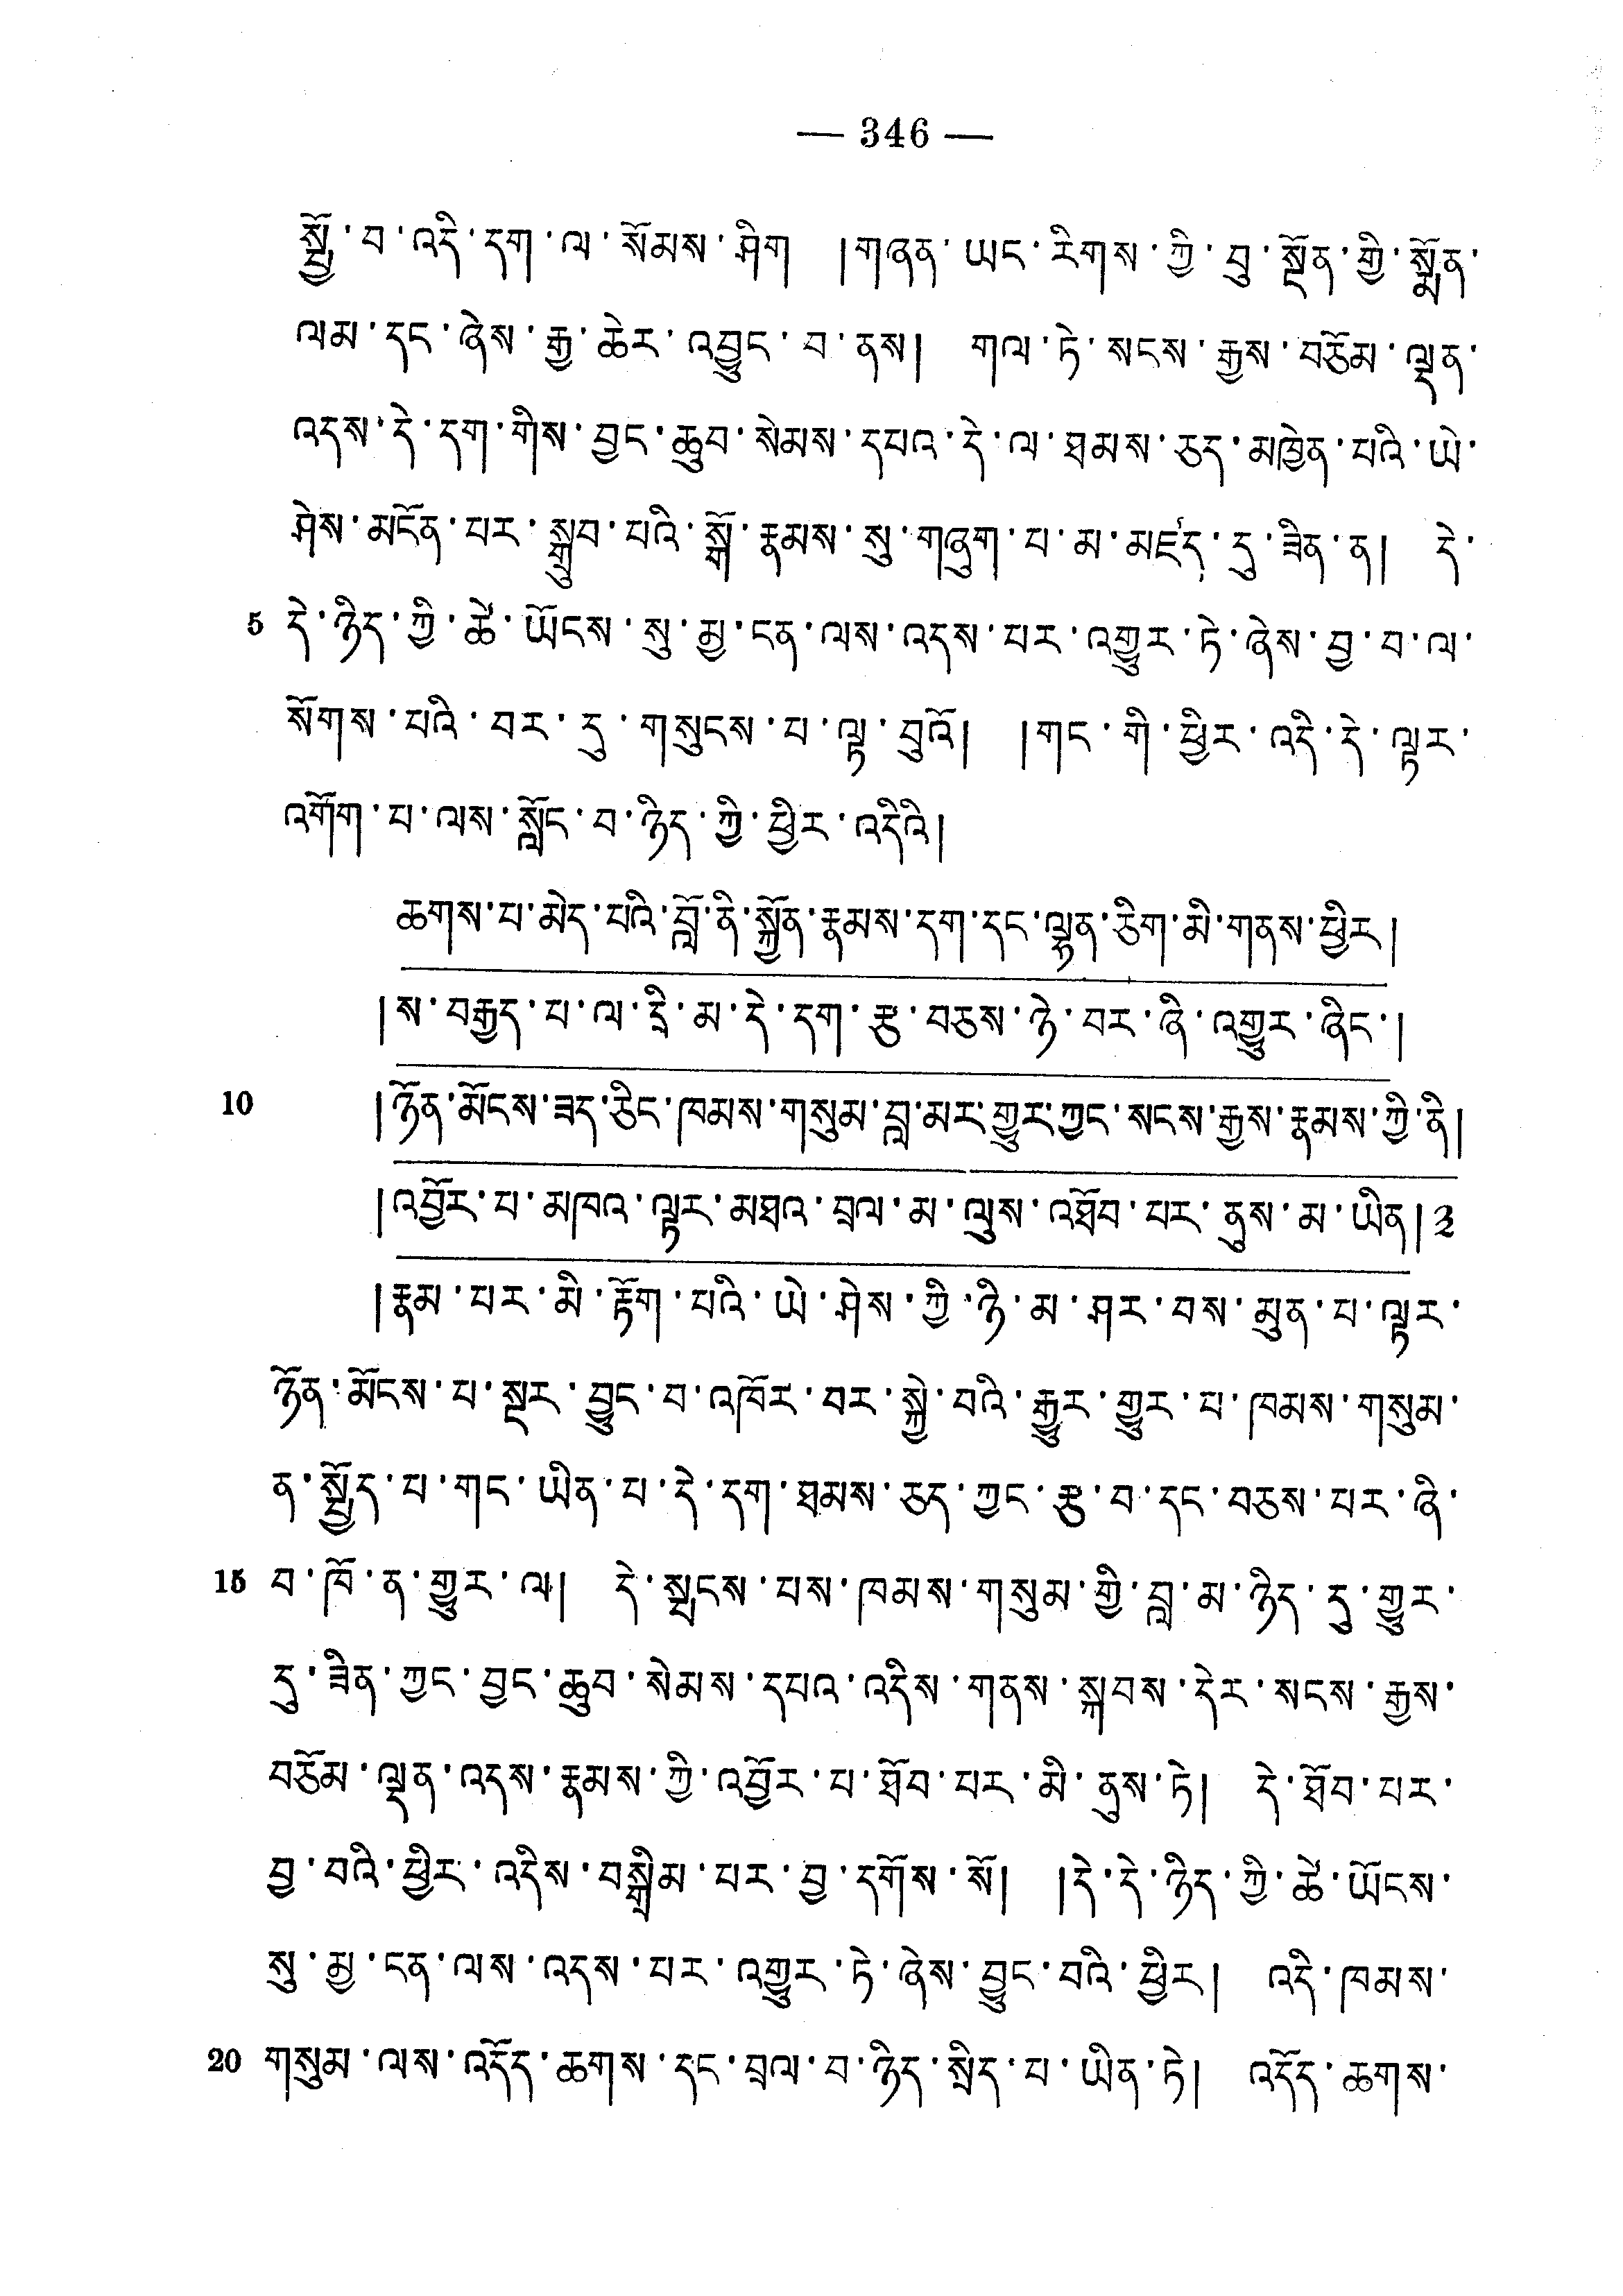 — 346 —
སྤྱོ་བ་འདི་དག་ལ་སོམས་ཤིག །གཞན་ཡང་རིགས་ཀྱི་བུ་སྔོན་གྱི་སྨོན་
ལམ་དང་ཞེས་རྒྱ་ཆེར་འབྱུང་བ་ནས། གལ་ཏེ་སངས་རྒྱས་བཅོམ་ལྡན་
འདས་དེ་དག་གིས་བྱང་ཆུབ་སེམས་དཔའ་དེ་ལ་ཐམས་ཅད་མཁྱེན་པའི་ཡེ་
ཤེས་མངོན་པར་སྒྲུབ་པའི་སྒོ་རྣམས་སུ་གཞུག་པ་མ་མཛད་དུ་ཟིན་ན། དེ་
5 དེ་ཉིད་ཀྱི་ཚེ་ཡོངས་སུ་མྱ་ངན་ལས་འདས་པར་འགྱུར་ཏེ་ཞེས་བྱ་བ་ལ་
སོགས་པའི་བར་དུ་གསུངས་པ་ལྟ་བུའོ། །གང་གི་ཕྱིར་འདི་དེ་ལྟར་
འགོག་པ་ལས་སློང་བ་ཉིད་ཀྱི་ཕྱིར་འདིའི།
ཆགས་པ་མེད་པའི་བློ་ནི་སྐྱོན་རྣམས་དག་དང་ལྷན་ཅིག་མི་གནས་ཕྱིར།
།ས་བརྒྱད་པ་ལ་དྲི་མ་དེ་དག་རྩ་བཅས་ཉེ་བར་ཞི་འགྱུར་ཞིང་།
10 །ཉོན་མོངས་ཟད་ཅིང་ཁམས་གསུམ་བླ་མར་གྱུར་ཀྱང་སངས་རྒྱས་རྣམས་ཀྱི་ནི།
།འབྱོར་པ་མཁའ་ལྟར་མཐའ་བྲལ་མ་ལུས་འཐོབ་པར་ནུས་མ་ཡིན།༢
།རྣམ་པར་མི་རྟོག་པའི་ཡེ་ཤེས་ཀྱི་ཉི་མ་ཤར་བས་མུན་པ་ལྟར་
ཉོན་མོངས་པ་སྔར་བྱུང་བ་འཁོར་བར་སྐྱེ་བའི་རྒྱུར་གྱུར་པ་ཁམས་གསུམ་
ན་སྤྱོད་པ་གང་ཡིན་པ་དེ་དག་ཐམས་ཅད་ཀྱང་རྩ་བ་དང་བཅས་པར་ཞི་
15 བ་ཁོ་ན་གྱུར་ལ། དེ་སྤངས་པས་ཁམས་གསུམ་གྱི་བླ་མ་ཉིད་དུ་གྱུར་
དུ་ཟིན་ཀྱང་བྱང་ཆུབ་སེམས་དཔའ་འདིས་གནས་སྐབས་དེར་སངས་རྒྱས་
བཅོམ་ལྡན་འདས་རྣམས་ཀྱི་འབྱོར་པ་ཐོབ་པར་མི་ནུས་ཏེ། དེ་ཐོབ་པར་
བྱ་བའི་ཕྱིར་འདིས་བསྒྲིམ་པར་བྱ་དགོས་སོ། །དེ་དེ་ཉིད་ཀྱི་ཚེ་ཡོངས་
སུ་མྱ་ངན་ལས་འདས་པར་འགྱུར་ཏེ་ཞེས་བྱུང་བའི་ཕྱིར། འདི་ཁམས་
20 གསུམ་ལས་འདོད་ཆགས་དང་བྲལ་བ་ཉིད་སྲིད་པ་ཡིན་ཏེ། འདོད་ཆགས་